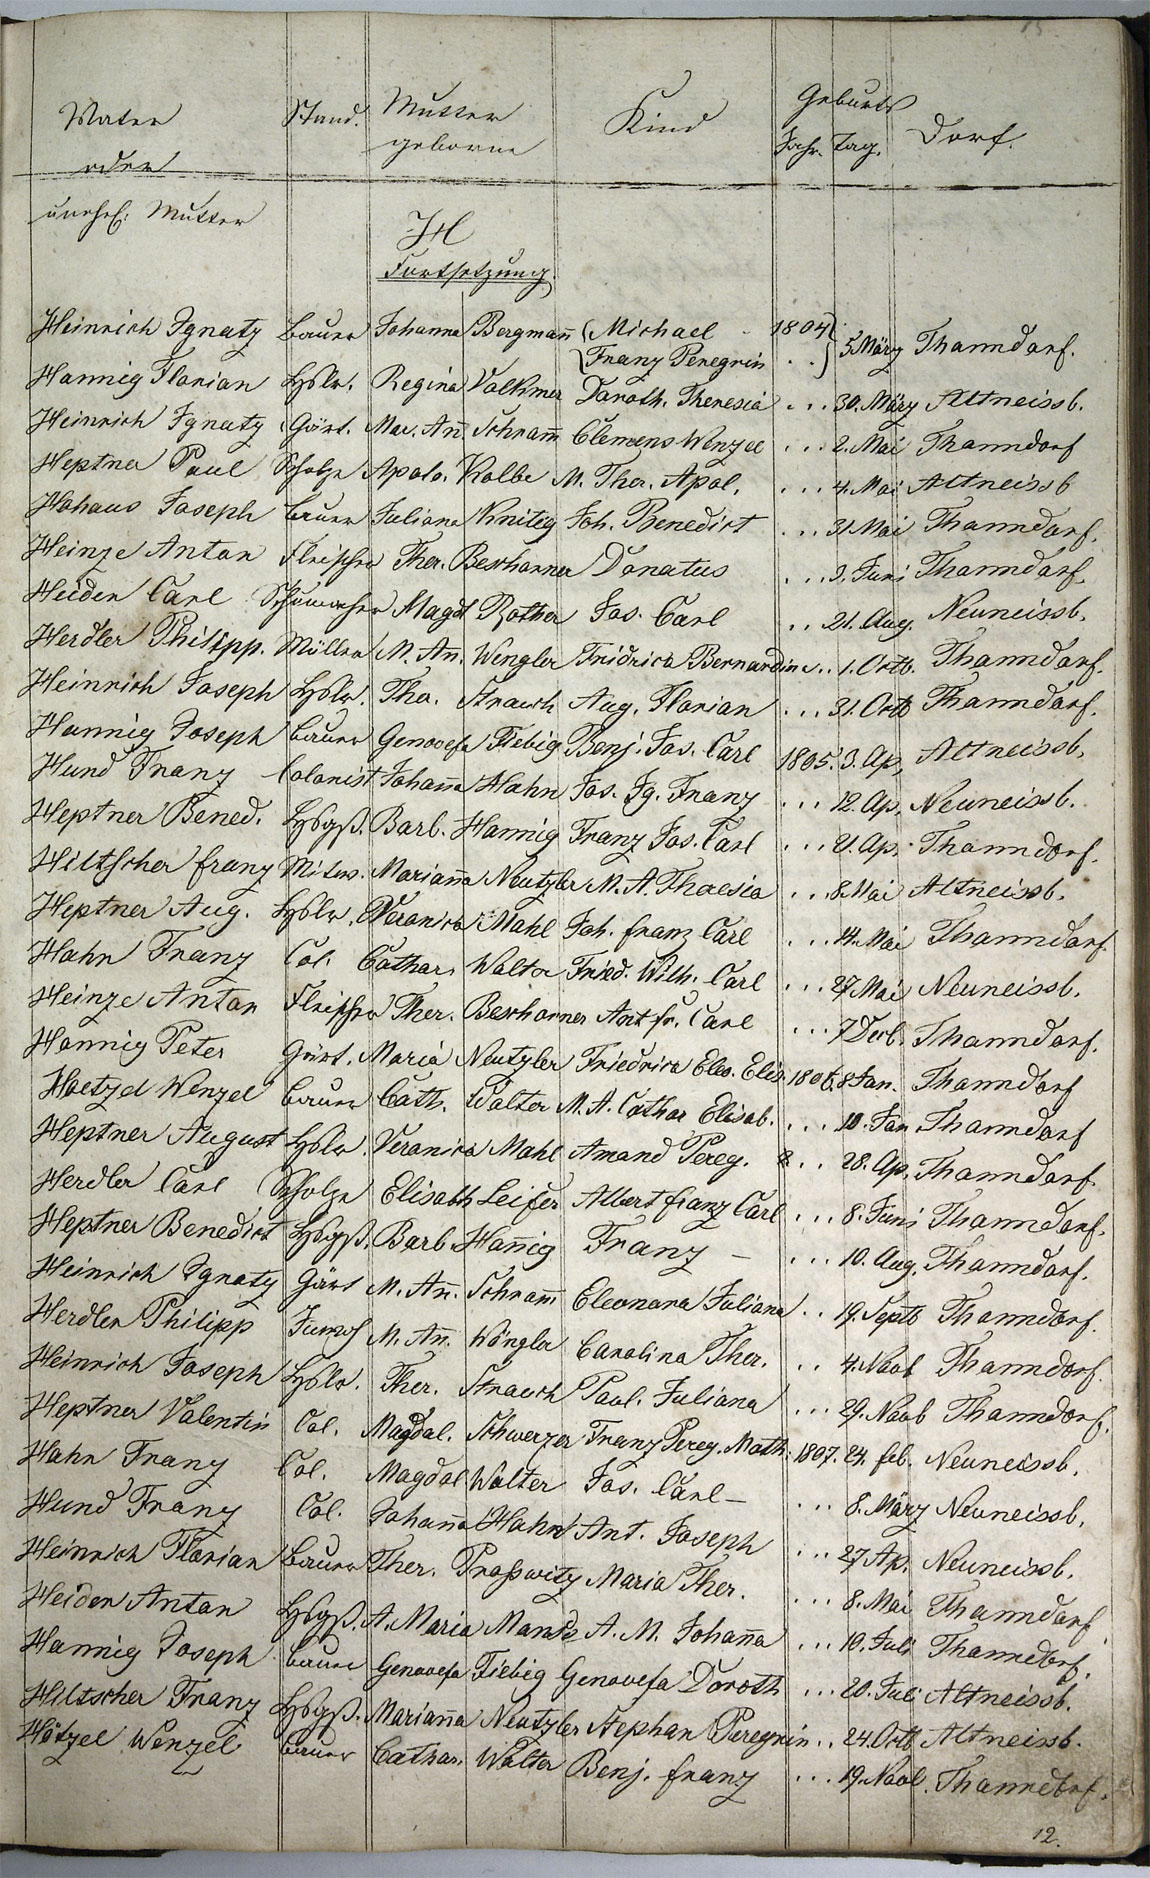 Vater Stand. Mutter Kind Geburts Dorf.
oder geborne Jahr. Tag.
unehel. Mutter
H
Fortsetzung.
Heinrich Ignatz Bauer Johanna Bergmañ Michael 1804
Franz Peregrin . . 5. März Thanndorf.
Hannig Florian Hslr. Regina Volkmer Doroth. Theresia . . . 30. März Altneissb.
Heinrich Ignatz Gärt. Mar. Añ Schram̄ Clemens Wenzel . . . 2. Mai Thanndorf
Heptner Paul Scholze Apolo. Kolbe M. Ther. Apol. . . . 4. Mai Altneissb
Hohaus Joseph Bauer Juliana Knitig Joh. Benedict . . . 31. Mai Thanndorf.
Heinze Anton Fleischer Ther. Beschorner Donatus . . . 3. Juni Thanndorf.
Heiden Carl Schumacher Magd Rother Jos. Carl . . 21. Aug. Neuneissb.
Herdler Philipp. Müller M. An. Wengler Fridrica Bernardine . . 1. Octb. Thanndorf.
Heinrich Joseph Hslr. The. Strauch Aug. Florian . . . 31. Octb Thanndorf.
Hannig Joseph Bauer Genovefa Fiebig Benj. Jos. Carl 1805. 3. Ap. Altneissb.
Hund Franz Colonist Johaña Hahn Jos. Ig. Franz . . . 12. Ap. Neuneissb.
Heptner Bened. Hsgß. Barb. Hannig Franz Jos. Carl . . . 21. Ap. Thanndorf.
Hiltscher franz Mitw. Mariaña Neutzler M. A. Thaesia . . . 8. Mai Altneissb.
Heptner Aug. Hslr. Veronica Mahl Joh. franz Carl . . . 14. Mai Thanndorf.
Hahn Franz Col. Cathar. Walter Fried. Wilh. Carl . . . 27 Mai Neuneissb.
Heinze Anton Fleischer Ther. Beschorner Ant fr. Carl . . . 7 Decb. Thanndorf.
Hannig Peter Gärt. Maria Neutzler Friedrica Eleo. Elis. 1806. 8 Jan. Thanndorf
Hoetzel Wenzel Bauer Cath. Walter M. A. Cathar Elisab. . . . 10. Jan Thanndorf
Heptner August Hslr. Veronica Mahl Amand Pereg. . . 28. Ap. Thanndorf.
Herdler Carl Scholze Elisabth Leifer Albert franz Carl . . . 8. Juni Thanndorf.
Heptner Benedict Hsgß. Barb Hañig Franz – . . . 10. Aug. Thanndorf.
Heinrich Ignatz Gärt M. Añ. Schram̄ Eleonora Juliana . . 19. Septb Thanndorf.
Herdler Philipp M. Añ. Wengler Carolina Ther. . . 4. Novb Thanndorf.
Heinrich Joseph Hslr. Ther. Strauch Paul. Juliana . . . 29. Novb Thanndorf.
Heptner Valentin Col. Magdal. Schwerzer Franz Pereg. Math. 1807. 24. feb. Neuneissb.
Hahn Franz Col. Magdal Walter Jos. Carl – . . . 8. März Neuneissb.
Hund Franz Col. Johaña Hahn Ant. Joseph . . . 27 Ap. Neuneissb.
Heinrich Florian Bauer Ther. Proßwitz Maria Ther. . . . 8. Mai Thanndorf
Heiden Anton Hsgß. A. Maria A. M. Johaña . . . 10. Juli Thanndorf.
Hannig Joseph Bauer Genovefa Fiebig Genovefa Doroth . . . 20. Juli Altneissb.
Hiltscher Franz Hsgß. Mariaña Neutzler Stephan Peregrin . . 24. Octb Altneissb.
Hötzel Wenzel Bauer Cathar. Walter Benj. franz . . . 19. Novb. Thanndorf.
12.